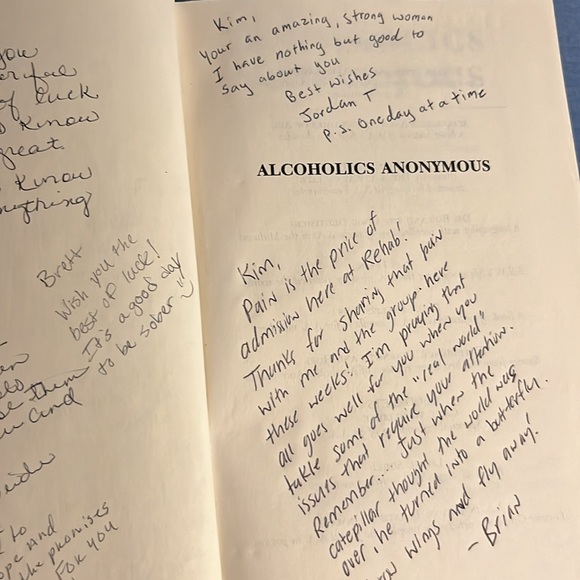 you
of luck
know
great
know
anything
Brett
Wish you the
best of luck!
It's a good day
to be sober
them
and
to
hope and
the promises
FOR YOU
Kim,
your an amazing, strong woman
I have nothing but good to
say about you
Best wishes
Jordan T
p.s. One day at a time
ALCOHOLICS ANONYMOUS
Kim,
Pain is the price of
admission here at Rehab!
Thanks for sharing that pain
with me and the group here
these weeks! I'm praying that
all goes well for you when you
takle some of the "real world"
issues that require your attention.
Remember... Just when the
catepillar thought the world was
over, he turned into a butterful.
wings and fly away!
- Brian